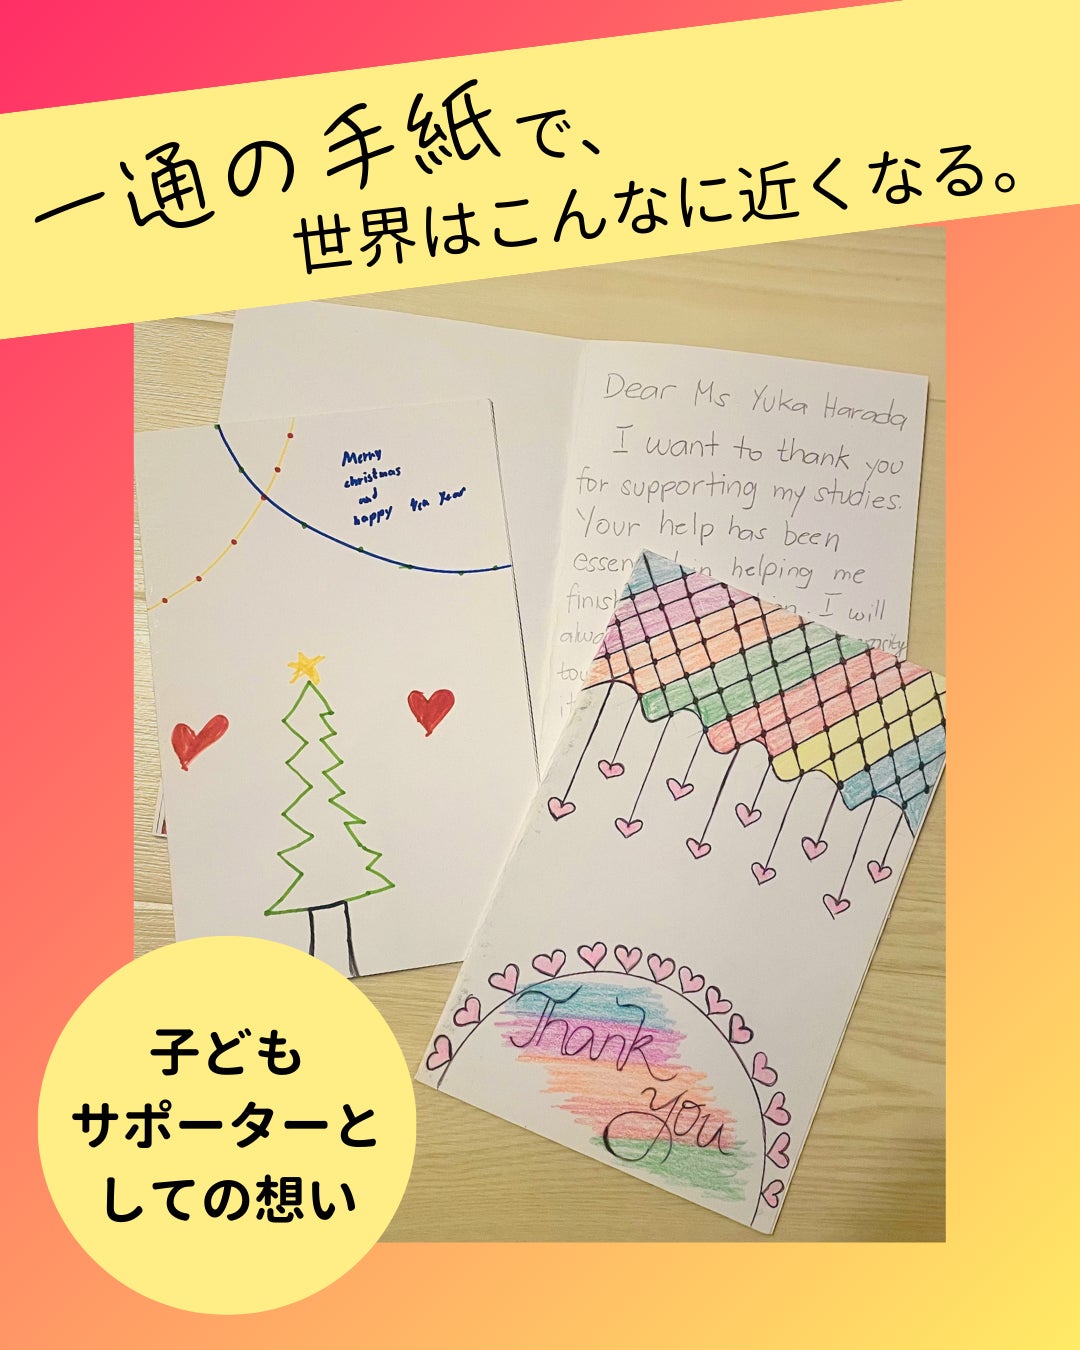 一通の手紙で、
世界はこんなに近くなる。
Merry
christmas
and
happy Year
Dear Ms Yuka Harada
I want to thank you
for supporting my studies.
Your help has been
in helping me
I will
Thank
you
子ども
サポーターと
しての想い